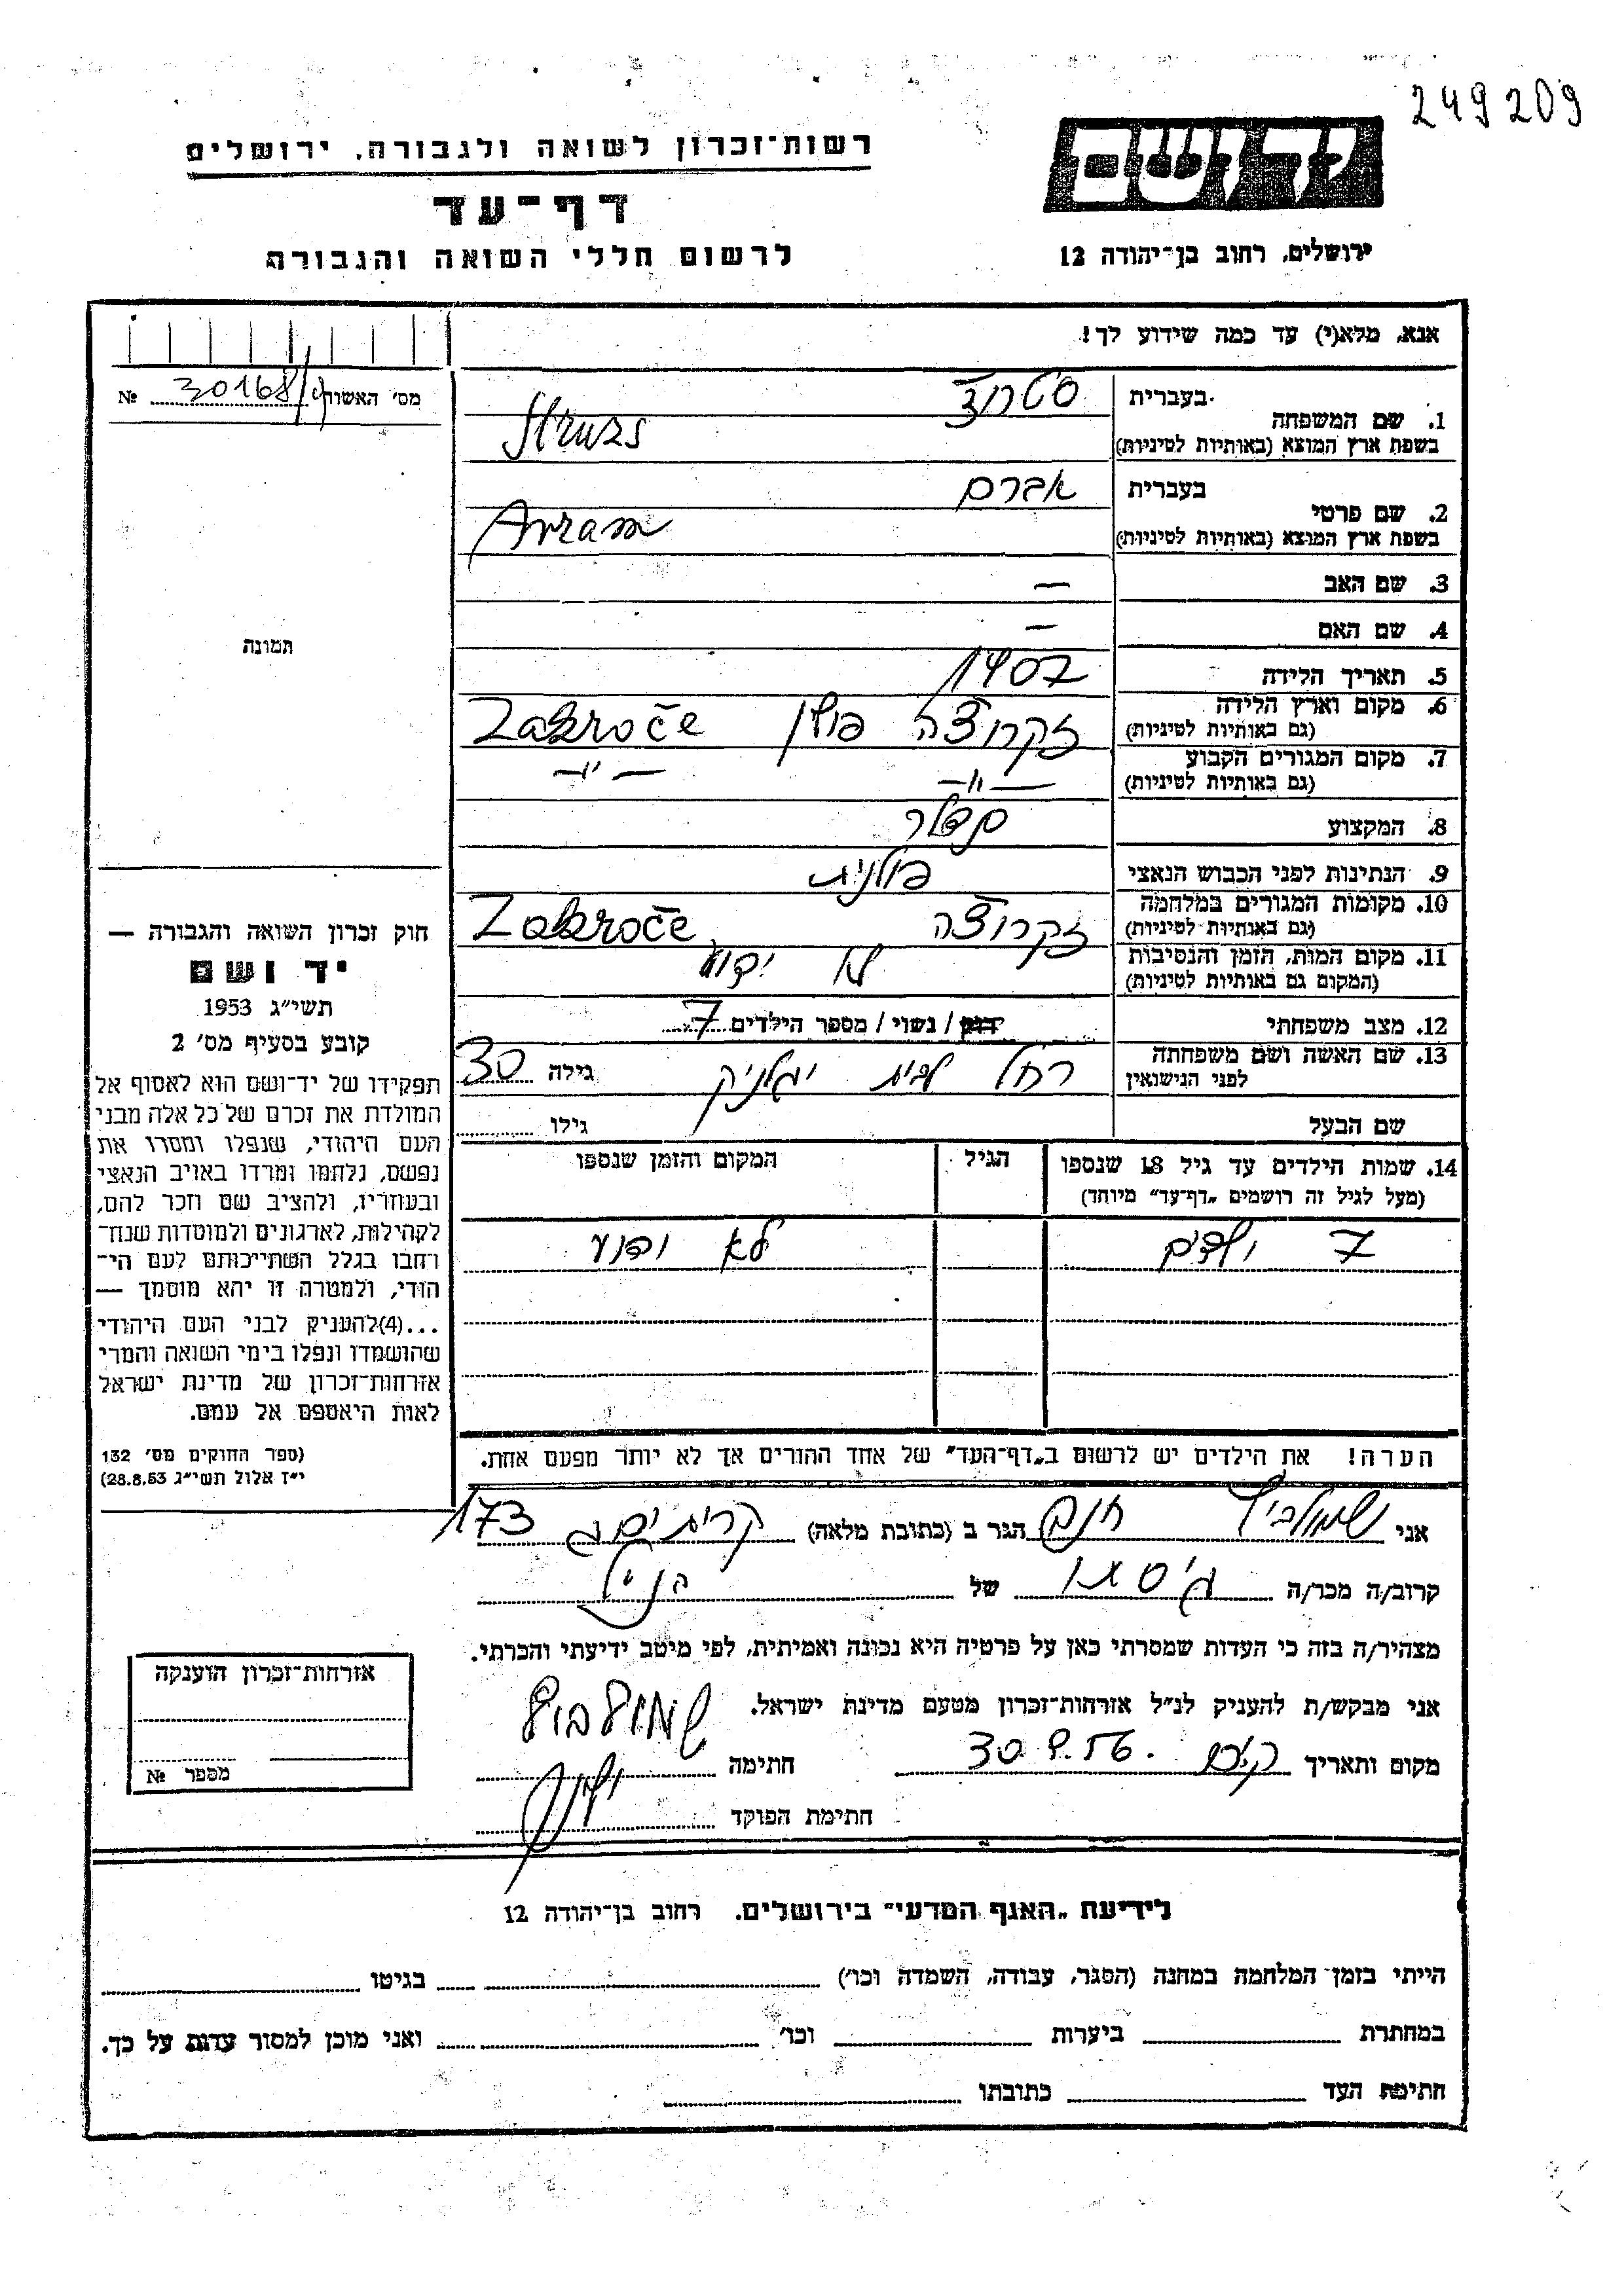 249209
רשות־זכרון לשואה ולגבורה, ירושלים
יד ושם
דף־עד
לרשום חללי השואה והגבורה
ירושלים, רחוב בן־יהודה 12
אנא, מלא(י) עד כמה שידוע לך!
מס' האשור 30168/ № 
בעברית
1. שם המשפחה
בשפת ארץ המוצא (באותיות לטיניות)
Struzs
בעברית אברם
2. שם פרטי
בשפת ארץ המוצא (באותיות לטיניות)
Avram
3. שם האב —
4. שם האם —
תמונה
5. תאריך הלידה 1907
6. מקום וארץ הלידה
(גם באותיות לטיניות)
זקרוצה פולין Zakroče
7. מקום המגורים הקבוע
(גם באותיות לטיניות)
—"— —"—
8. המקצוע סנדלר
9. הנתינות לפני הכבוש הנאצי פולנית
10. מקומות המגורים במלחמה
(גם באותיות לטיניות)
זקרוצה Zakroče
11. מקום המות, הזמן והנסיבות
(המקום גם באותיות לטיניות)
לא ידוע
12. מצב משפחתי רווק / נשוי / מספר הילדים 7
13. שם האשה ושם משפחתה
לפני הנישואין
רחל לבית גילה 30
שם הבעל גילו
14. שמות הילדים עד גיל 18 שנספו הגיל המקום והזמן שנספו
(מעל לגיל זה רושמים „דף־עד" מיוחד)
7 ילדים לא ידוע
הערה! את הילדים יש לרשום ב„דף־העד" של אחד ההורים אך לא יותר מפעם אחת.
חוק זכרון השואה והגבורה —
יד ושם
תשי"ג 1953
קובע בסעיף מס' 2
תפקידו של יד־ושם הוא לאסוף אל
המולדת את זכרם של כל אלה מבני
העם היהודי, שנפלו ומסרו את
נפשם, נלחמו ומרדו באויב הנאצי
ובעוזריו, ולהציב שם וזכר להם,
לקהילות, לארגונים ולמוסדות שנח־
רבו בגלל השתייכותם לעם הי־
הודי, ולמטרה זו יהא מוסמך —
...(4)להעניק לבני העם היהודי
שהושמדו ונפלו בימי השואה והמרי
אזרחות־זכרון של מדינת ישראל
לאות היאספם אל עמם.
(ספר החוקים מס' 132
י"ז אלול תשי"ג 28.8.53)
אני שמולביץ הגר ב (כתובת מלאה) קרית ים ג 173
קרוב/ה מכר/ה גיסו של הנ"ל
מצהיר/ה בזה כי העדות שמסרתי כאן על פרטיה היא נכונה ואמיתית, לפי מיטב ידיעתי והכרתי.
אני מבקש/ת להעניק לנ"ל אזרחות־זכרון מטעם מדינת ישראל.
מקום ותאריך ק.ים 30.9.56. חתימה שמולביץ
חתימת הפוקד
אזרחות־זכרון הוענקה
מספר №
לידיעת „האגף המדעי" בירושלים, רחוב בן־יהודה 12
הייתי בזמן המלחמה במחנה (הסגר, עבודה, השמדה וכו') בגיטו
במחתרת ביערות וכו' ואני מוכן למסור עדות על כך.
חתימת העד כתובתו